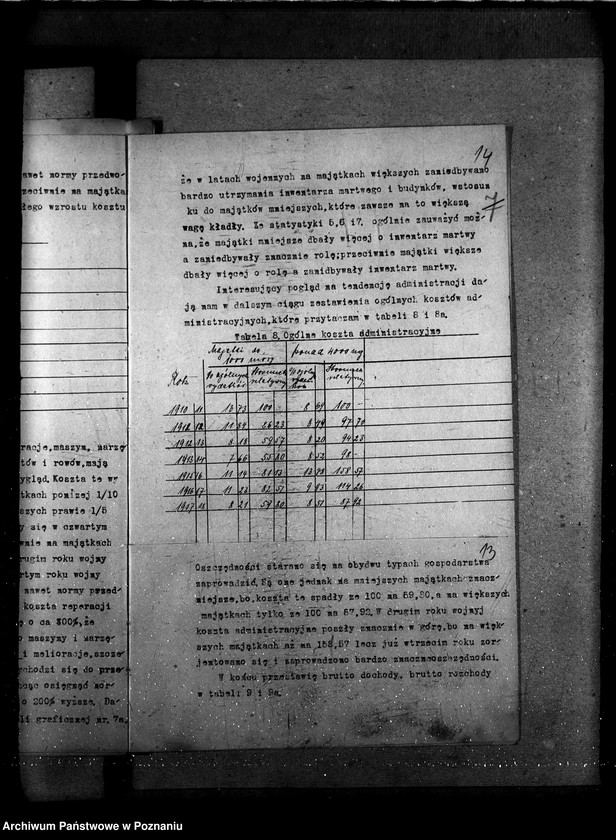 awet normy przedwo-
rzeciwnie na majątka
łego wzrostu kosztu
racje, maszyn, narzę-
tów i rowów, mają
ygląd. Koszta te wy
tkach poniżej 1/10
szych prawie 1/5
y się w czwartym
wnie na majątkach
rugim roku wojny
rtym roku wojny
nawet normy przed-
koszta reperacji
o ca 300%, że
o maszyny i narzę-
i melioracje, szcze
chodzi się do prze-
cząc osiągnąć nor-
o 200% wyższe. Da-
li graficznej nr. 7a.
14
że w latach wojennych na majątkach większych zaniedbywano
bardzo utrzymania inwentarza martwego i budynków, wstosun
ku do majątków mniejszych, które zawsze na to większą
wagę kładły. Ze statystyki 5,6 i7. ogólnie zauważyć moż-
na, że majątki mniejsze dbały więcej o inwentarz martwy
a zaniedbywały znacznie rolę; przeciwnie majątki większe
dbały więcej o rolę a zanidbywały inwentarz martwy.
Interesujący pogląd na tendencję administracji da-
ją nam w dalszym ciągu zestawienia ogólnych kosztów ad-
ministracyjnych, które przytaczam w tabeli 8 i 8a.
Tabela 8. Ogólne koszta administracyjne
Majątki do 1000 mórg ponad 4000 mg
Rok % ogólnych wydatków Stosunek relatywny
1910 11 13 73 100 - 8 100 -
12 11 26 23 8 97 70
1912 13 8 18 59 57 8 20 94 23
1913 14 7 66 55 80 8 52 98
1915 16 11 14 81 13 158 57
1916 17 11 23 82 9 93 114 26
18 8 21 59 80 8 51 87 92
13
Oszczędności starano się na obydwu typach gospodarstwa
zaprowadzić. Są one jednak na mniejszych majątkach znacz-
niejsze, bo, koszta te spadły ze 100 na 59,80, a na większych
majątkach tylko ze 100 na 87,92. W drugim roku wojnyj
koszta administracyjne poszły znacznie w górę, bo na więk-
szych majątkach aż na 158,57 lecz już wtrzecim roku zor-
jentowano się i zaprowadzono bardzo znacznoszczędności.
W końcu przedstawię brutto dochody, brutto rozchody
w tabeli 9 i 9a.
Archiwum Państwowe w Poznaniu